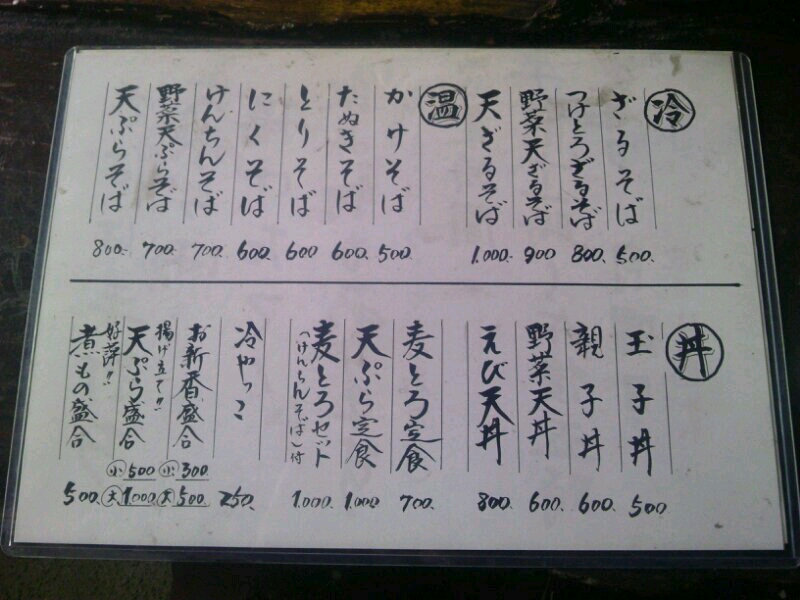 冷
ざるそば 500.
つけとろざるそば 800.
野菜天ざるそば 900
天ざるそば 1.000.
温
かけそば 500
たぬきそば 600.
とりそば 600
にくそば 600.
けんちんそば 700.
野菜天ぷらそば 700.
天ぷらそば 800.
丼
玉子丼 500
親子丼 600.
野菜天丼 600.
えび天丼 800
麦とろ定食 700.
天ぷら定食 1.000
麦とろセット 1.000.
(けんちんそば)付
冷やっこ 250.
お新香盛合 小 300 大 500
揚げ立て!!
天ぷら盛合 小 500 大 1.000
好評!!
煮もの盛合 500.